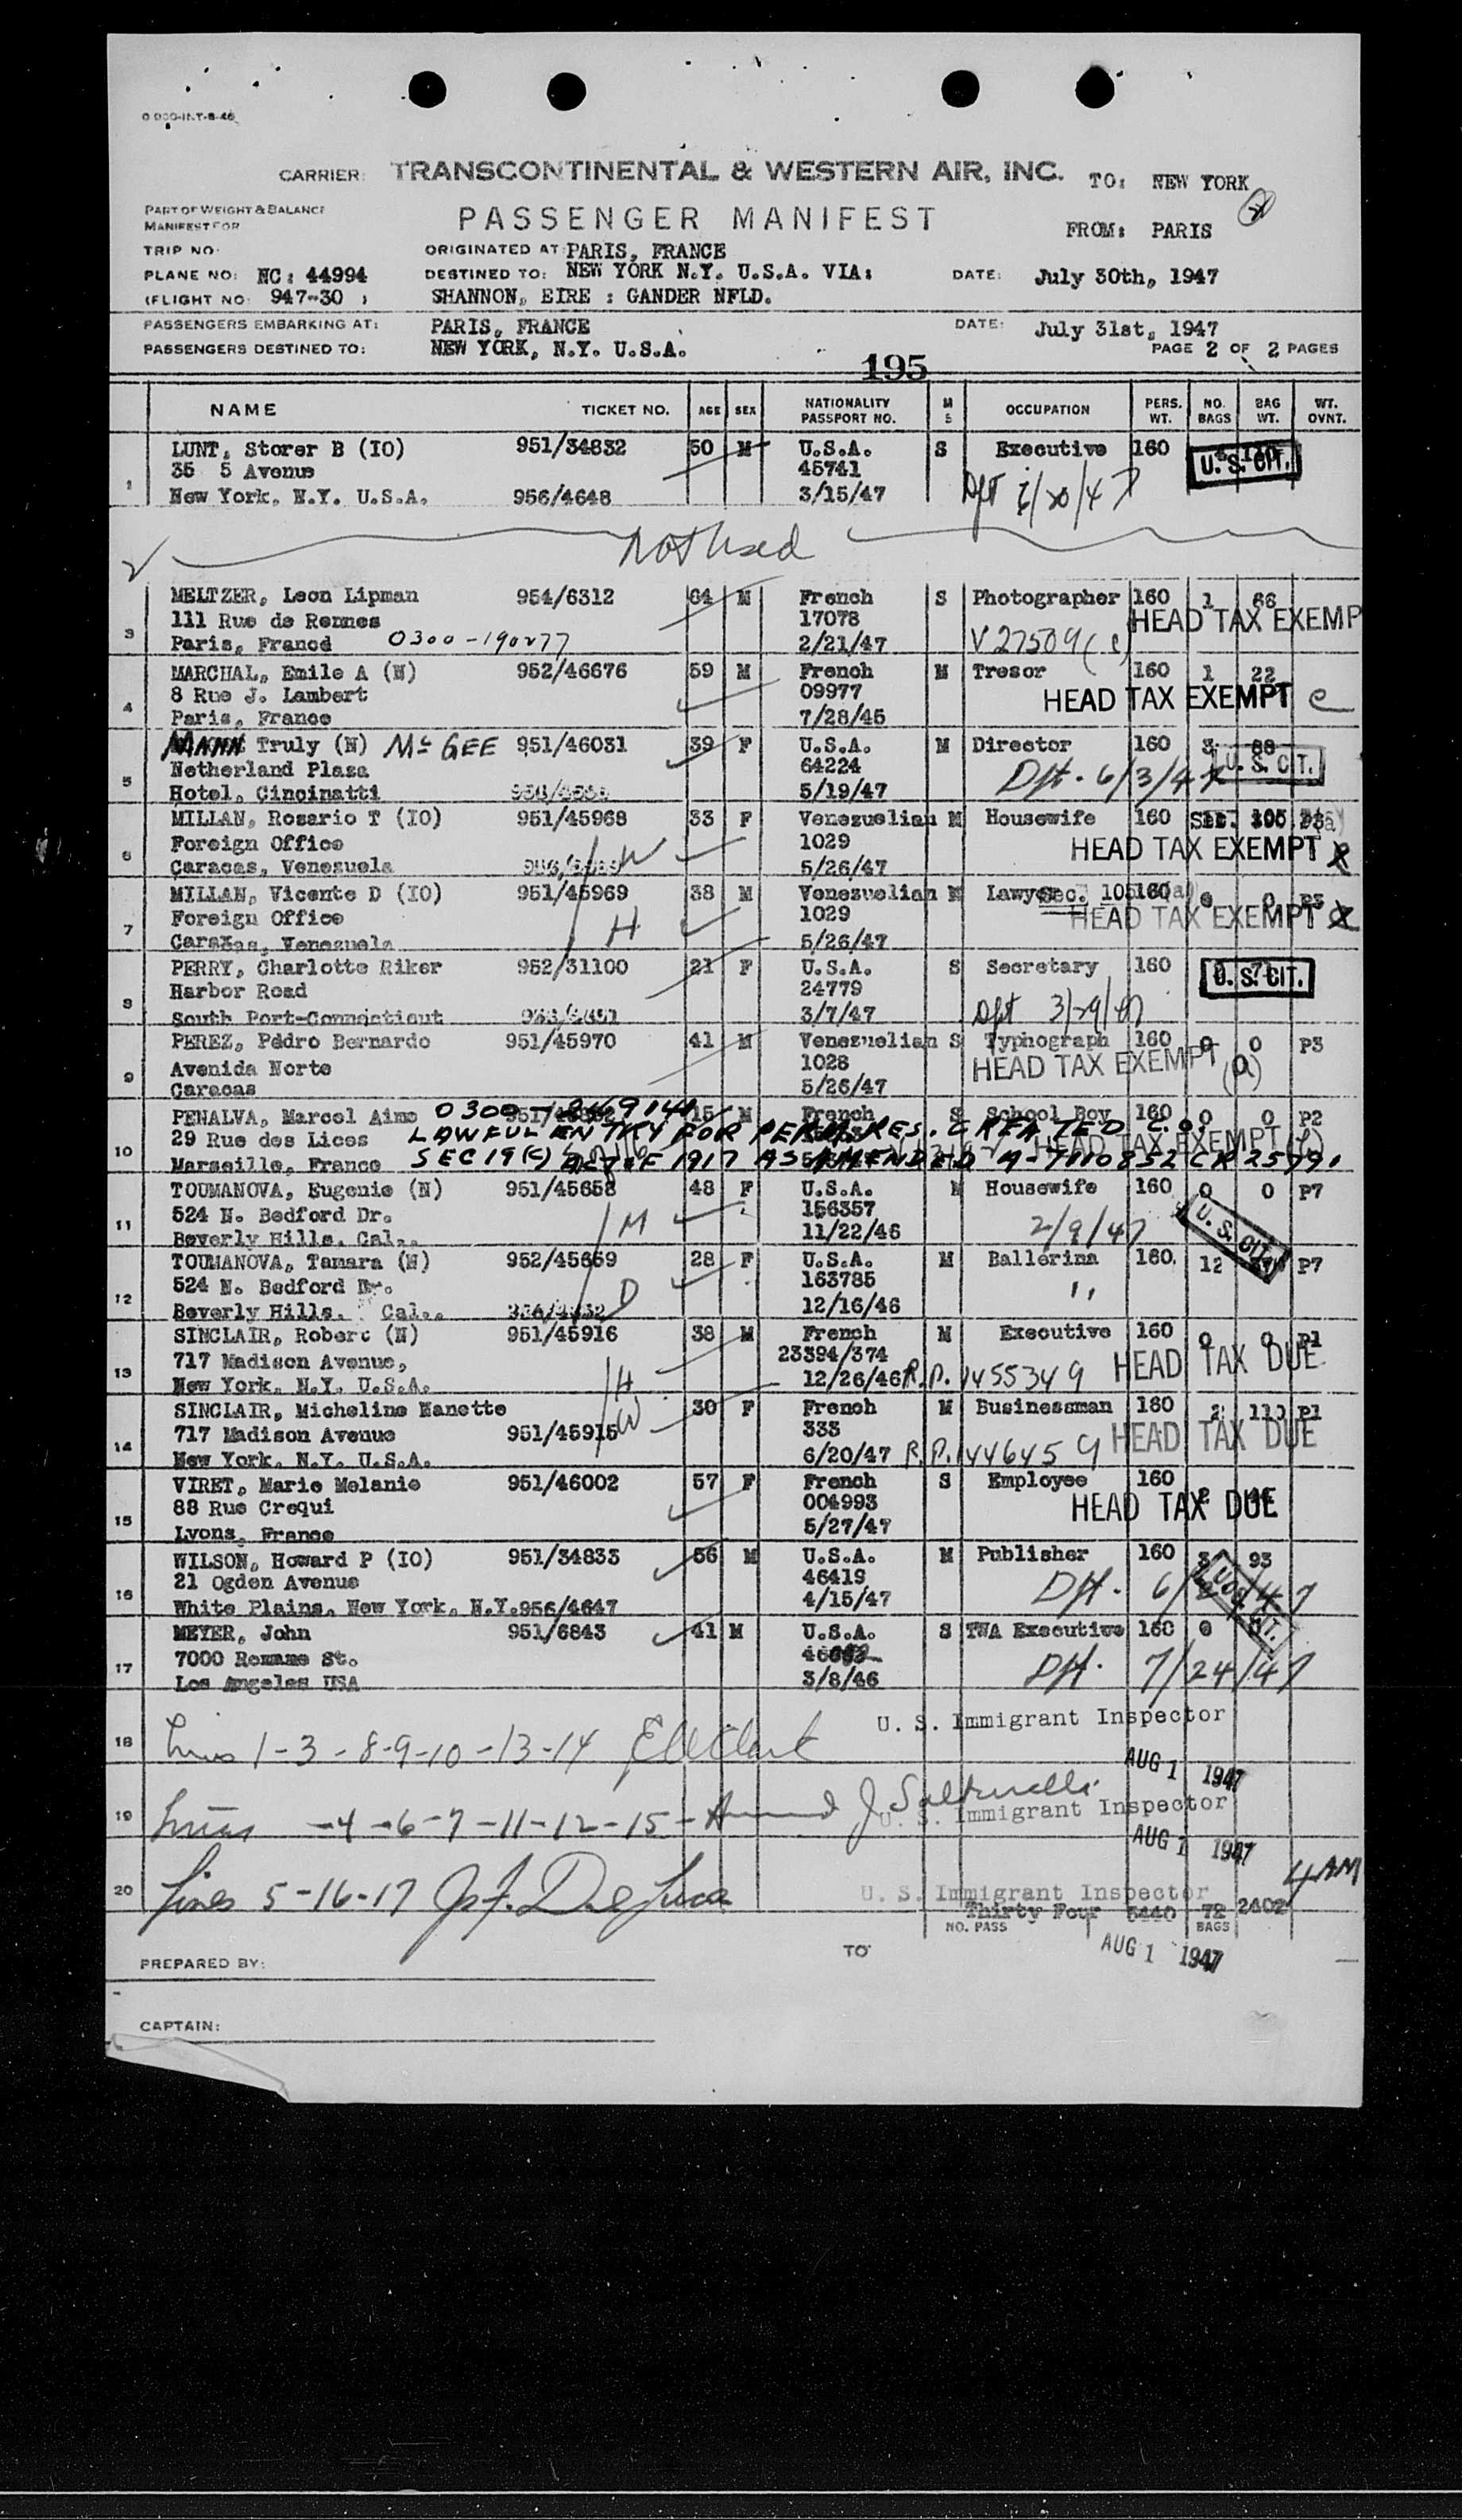 CARRIER: TRANSCONTINENTAL & WESTERN AIR, INC. TO: NEW YORK
PART OF WEIGHT & BALANCE
MANIFEST FOR
PASSENGER MANIFEST
FROM: PARIS
TRIP NO.
ORIGINATED AT: PARIS, FRANCE
PLANE NO: NC: 44994 DESTINED TO: NEW YORK N.Y. U.S.A. VIA: DATE: July 30th, 1947
(FLIGHT NO: 947-30 ) SHANNON, EIRE : GANDER NFLD.
PASSENGERS EMBARKING AT: PARIS, FRANCE DATE: July 31st, 1947
PASSENGERS DESTINED TO: NEW YORK, N.Y. U.S.A. PAGE 2 OF 2 PAGES
195
NAME TICKET NO. AGE SEX NATIONALITY PASSPORT NO. M S OCCUPATION PERS. WT. NO. BAGS BAG WT. WT. OVNT.
LUNT, Storer B (IO) 951/34832 50 M U.S.A. S Executive 160 U.S. CIT.
35 5 Avenue 45741
1 New York, N.Y. U.S.A. 956/4648 3/15/47
Not Used
MELTZER, Leon Lipman 954/6312 64 M French S Photographer 160 1 66
111 Rue de Rennes 17078 HEAD TAX EXEMP
3 Paris, Francd 0300-190277 2/21/47 V 27509 (c)
MARCHAL, Emile A (N) 952/46676 59 M French M Tresor 160 1 22
8 Rue J. Lambert 09977 HEAD TAX EXEMPT c
4 Paris, France 7/28/45
Truly (N) McGEE 951/46031 39 F U.S.A. M Director 160 3 88
Netherland Plaza 64224 U.S. CIT.
5 Hotel, Cincinatti 5/19/47
MILLAN, Rosario T (IO) 951/45968 33 F Venezuelian M Housewife 160
Foreign Office 1029 HEAD TAX EXEMPT
6 Caracas, Venezuela W 5/26/47
MILLAN, Vicente D (IO) 951/45969 38 M Venezuelian M Lawyer 160 0 0 P3
Foreign Office 1029 HEAD TAX EXEMPT
7 Caracas, Venezuela H 5/26/47
PERRY, Charlotte Riker 952/31100 21 F U.S.A. S Secretary 160 U.S. CIT.
Harbor Road 24779
8 South Port-Connecticut 3/7/47
PEREZ, Pedro Bernardo 951/45970 41 M Venezuelian S Typhograph 160 0 0 P3
Avenida Norte 1028 HEAD TAX EXEMPT (a)
9 Caracas 5/26/47
PENALVA, Marcel Aime 15 M French S School Boy 160 0 0 P2
29 Rue des Lices LAWFUL ENTRY FOR PERM. RES. CREATED C.O.
10 Marseille, France SEC 19(c) ACT OF 1917 AS AMENDED A-7110852 CR 25791
HEAD TAX EXEMPT
TOUMANOVA, Eugenie (N) 951/45658 48 F U.S.A. M Housewife 160 0 0 P7
524 N. Bedford Dr. 156357 U.S. CIT.
11 Beverly Hills, Cal.. M 11/22/46 2/8/47
TOUMANOVA, Tamara (N) 952/45659 28 F U.S.A. M Ballerina 160. 12 P7
524 N. Bedford Dr. 163785 "
12 Beverly Hills, Cal.. D 12/16/46
SINCLAIR, Robert (N) 951/45916 38 M French M Executive 160 0 0 P1
717 Madison Avenue, 23394/374 HEAD TAX DUE
13 New York, N.Y. U.S.A. H 12/26/46 R.P. 1455349
SINCLAIR, Micheline Nanette 30 F French M Businessman 160 2 110 P1
717 Madison Avenue 951/45915 W 333 HEAD TAX DUE
14 New York, N.Y. U.S.A. 6/20/47 R.P. 1446459
VIRET, Marie Melanie 951/46002 57 F French S Employee 160
88 Rue Crequi 004993 HEAD TAX DUE
15 Lyons, France 5/27/47
WILSON, Howard P (IO) 951/34833 56 M U.S.A. M Publisher 160 3 93
21 Ogden Avenue 46419 U.S. CIT.
16 White Plains, New York, N.Y. 956/4647 4/15/47
MEYER, John 951/6843 41 M U.S.A. S TWA Executive 160 0
7000 Romame St.
17 Los Angeles USA 3/8/46 7/24/47
U. S. Immigrant Inspector
18 Lines 1-3-8-9-10-13-14
AUG 1 1947
19 Lines -4-6-7-11-12-15-
U. S. Immigrant Inspector
AUG 1 1947
4 AM
20 Lines 5-16-17
U. S. Immigrant Inspector
Thirty Four 5440 72 2402
NO. PASS BAGS
TO
AUG 1 1947
PREPARED BY:
CAPTAIN: